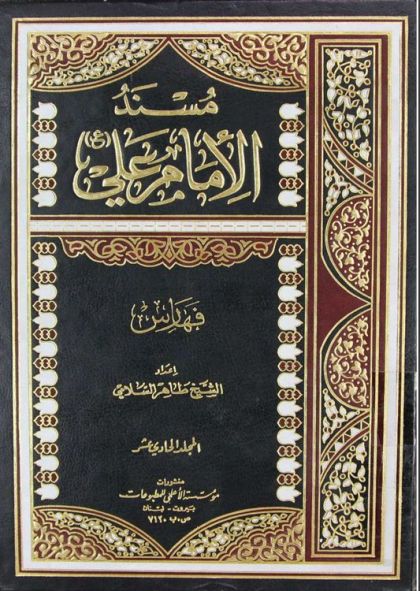 مُسْنَدُ
الإمام علي (ع)
فهارس
إعداد
الشيخ طاهر السلامي
المجلد الحادي عشر
منشورات
مؤسسة الأعلمي للمطبوعات
بيروت - لبنان
ص.ب ٧١٢٠